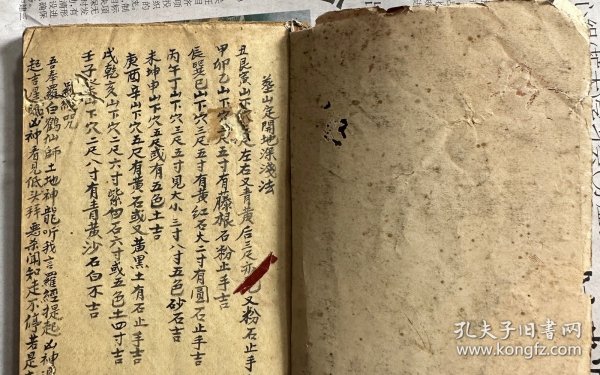 葬山定開地深淺法
丑艮寅山下穴左右又青黃后三尺亦又粉石止手
甲卯乙山下穴尺五寸有藤根石粉止手吉
辰巽巳山下穴三尺五寸有黃紅石大二寸有圓石止手吉
丙午丁山下穴三尺五寸見大小三寸八寸五色砂石吉
未坤申山下穴五尺或有五色土吉
庚酉辛山下穴五尺有黃石或又黃黑土有石止手吉
戌乾亥山下穴二尺六寸紫匃石六寸或五色土四寸吉
壬子癸山下穴二尺八寸有青黃沙石白不吉
羅綫咒
吾奉羅白鶴仙師土地神龍听我言羅經提起凶神
起吉星凶神看見低头拜惡煞闻知走不停若是
孔夫子旧书网
www.kongfz.com